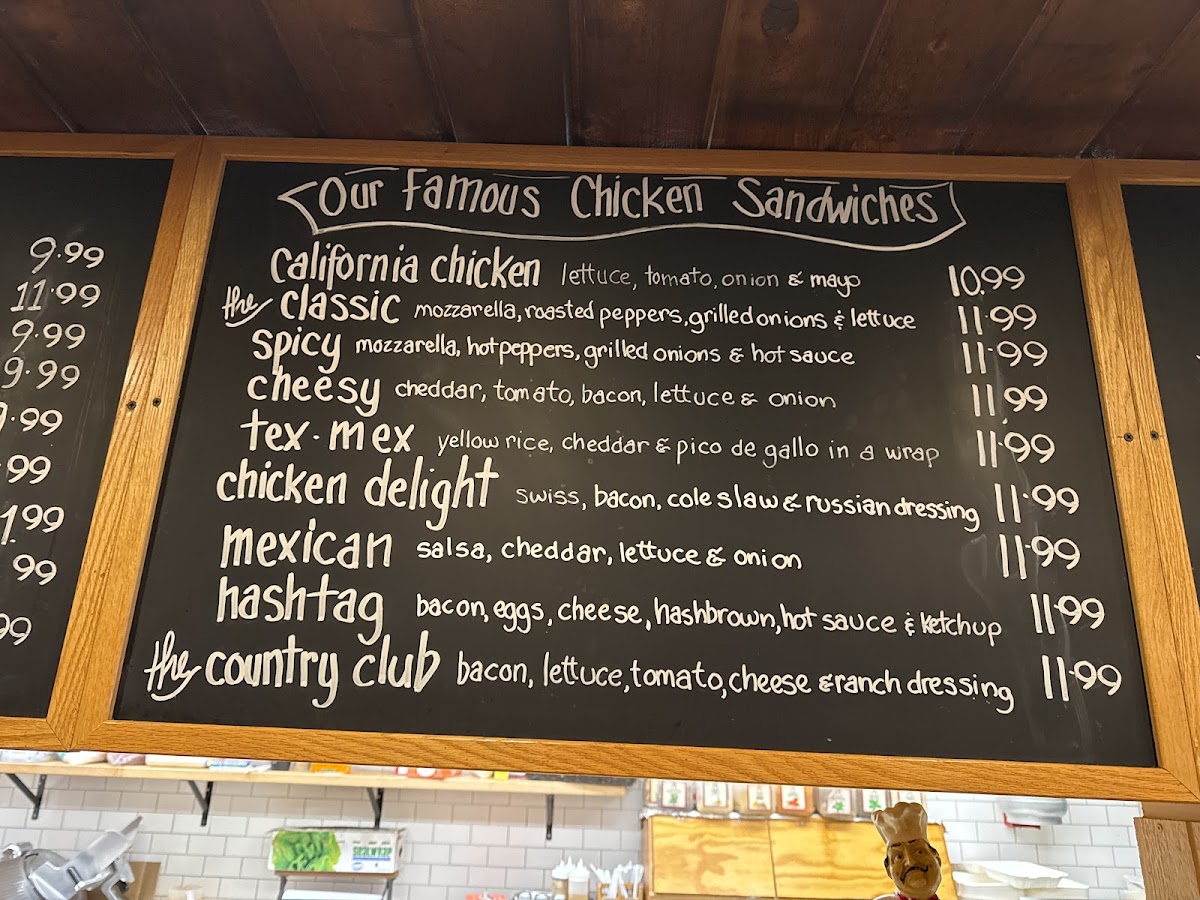 Our Famous Chicken Sandwiches
california chicken lettuce, tomato, onion & mayo 10.99
the classic mozzarella, roasted peppers, grilled onions & lettuce 11.99
spicy mozzarella, hot peppers, grilled onions & hot sauce 11.99
cheesy cheddar, tomato, bacon, lettuce & onion 11.99
tex-mex yellow rice, cheddar & pico de gallo in a wrap 11.99
chicken delight swiss, bacon, coleslaw & russian dressing 11.99
mexican salsa, cheddar, lettuce & onion 11.99
hashtag bacon, eggs, cheese, hashbrown, hot sauce & ketchup 11.99
the country club bacon, lettuce, tomato, cheese & ranch dressing 11.99
9.99
11.99
9.99
9.99
.99
.99
1.99
99
99